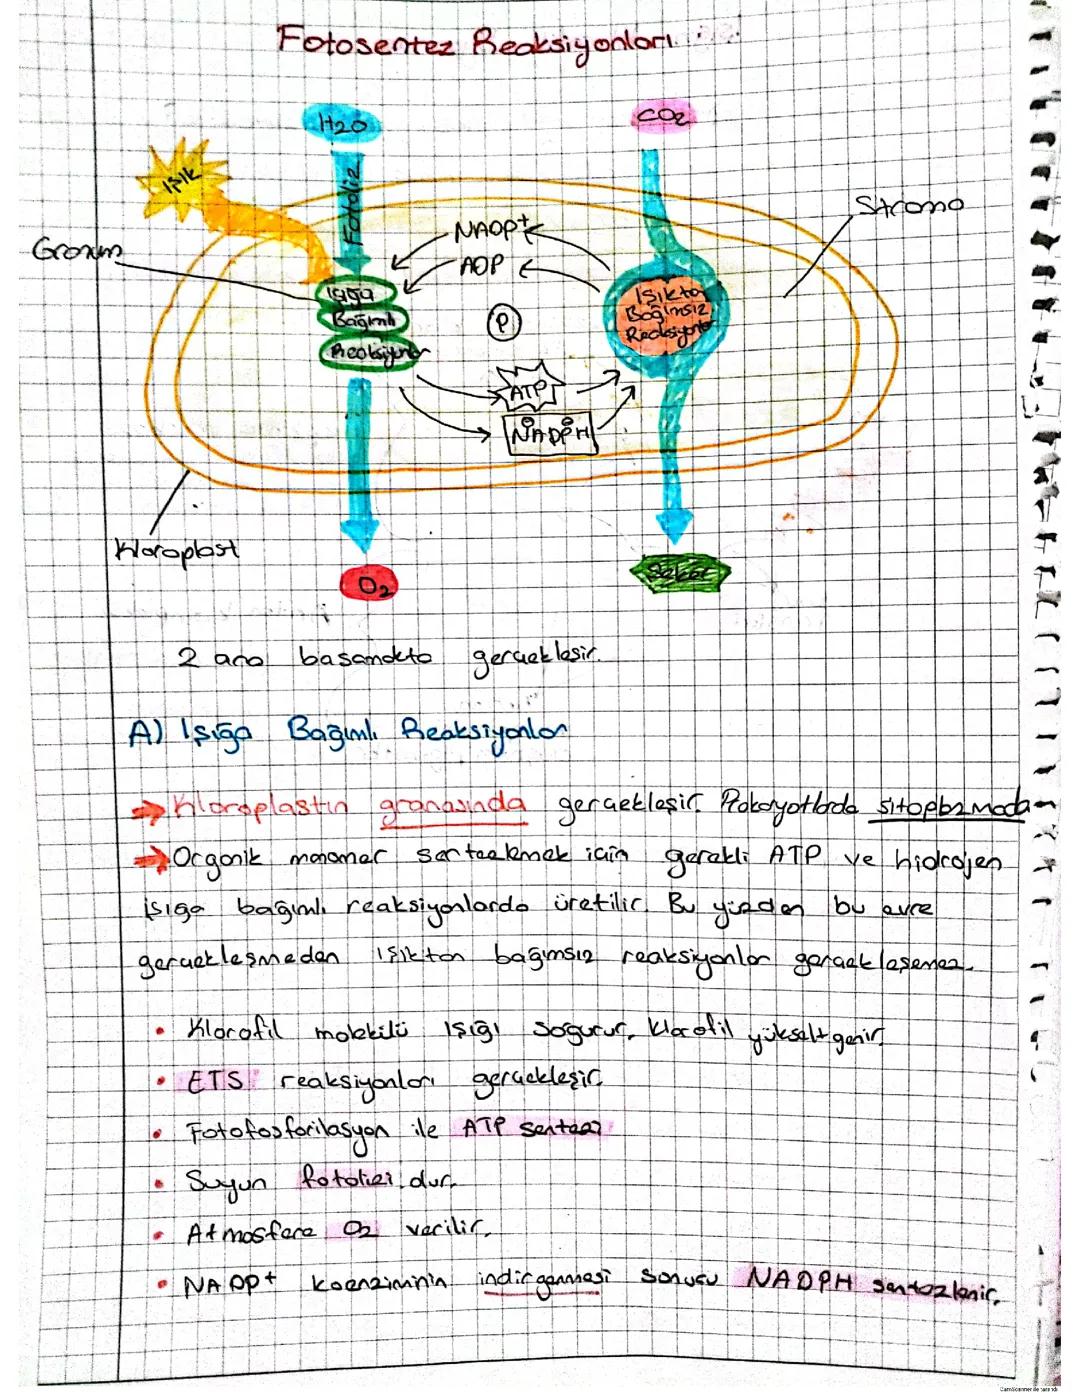 Fotosentez Reaksiyonları
H2O
CO2
Işık
Fotoliz
Stroma
NADP+
Granum
ADP
Işığa
Bağımlı
Reaksiyonlar
Işıktan
Bağımsız
Reaksiyonlar
P
ATP
NADPH
Kloroplast
O2
Şeker
2 ana basamakta gerçekleşir.
A) Işığa Bağımlı Reaksiyonlar
Kloroplastın granasında gerçekleşir. Prokaryotlarda sitoplazmada
Organik monomer sentezlemek için gerekli ATP ve hidrojen
ışığa bağımlı reaksiyonlarda üretilir. Bu yüzden bu evre
gerçekleşmeden ışıktan bağımsız reaksiyonlar gerçekleşemez.
• Klorofil molekülü ışığı soğurur, klorofil yükseltgenir.
• ETS reaksiyonları gerçekleşir.
• Fotofosforilasyon ile ATP sentezi
• Suyun fotolizi olur.
• Atmosfere O2 verilir.
• NADP+ koenziminin indirgenmesi sonucu NADPH sentezlenir.
CamScanner ile tarandı